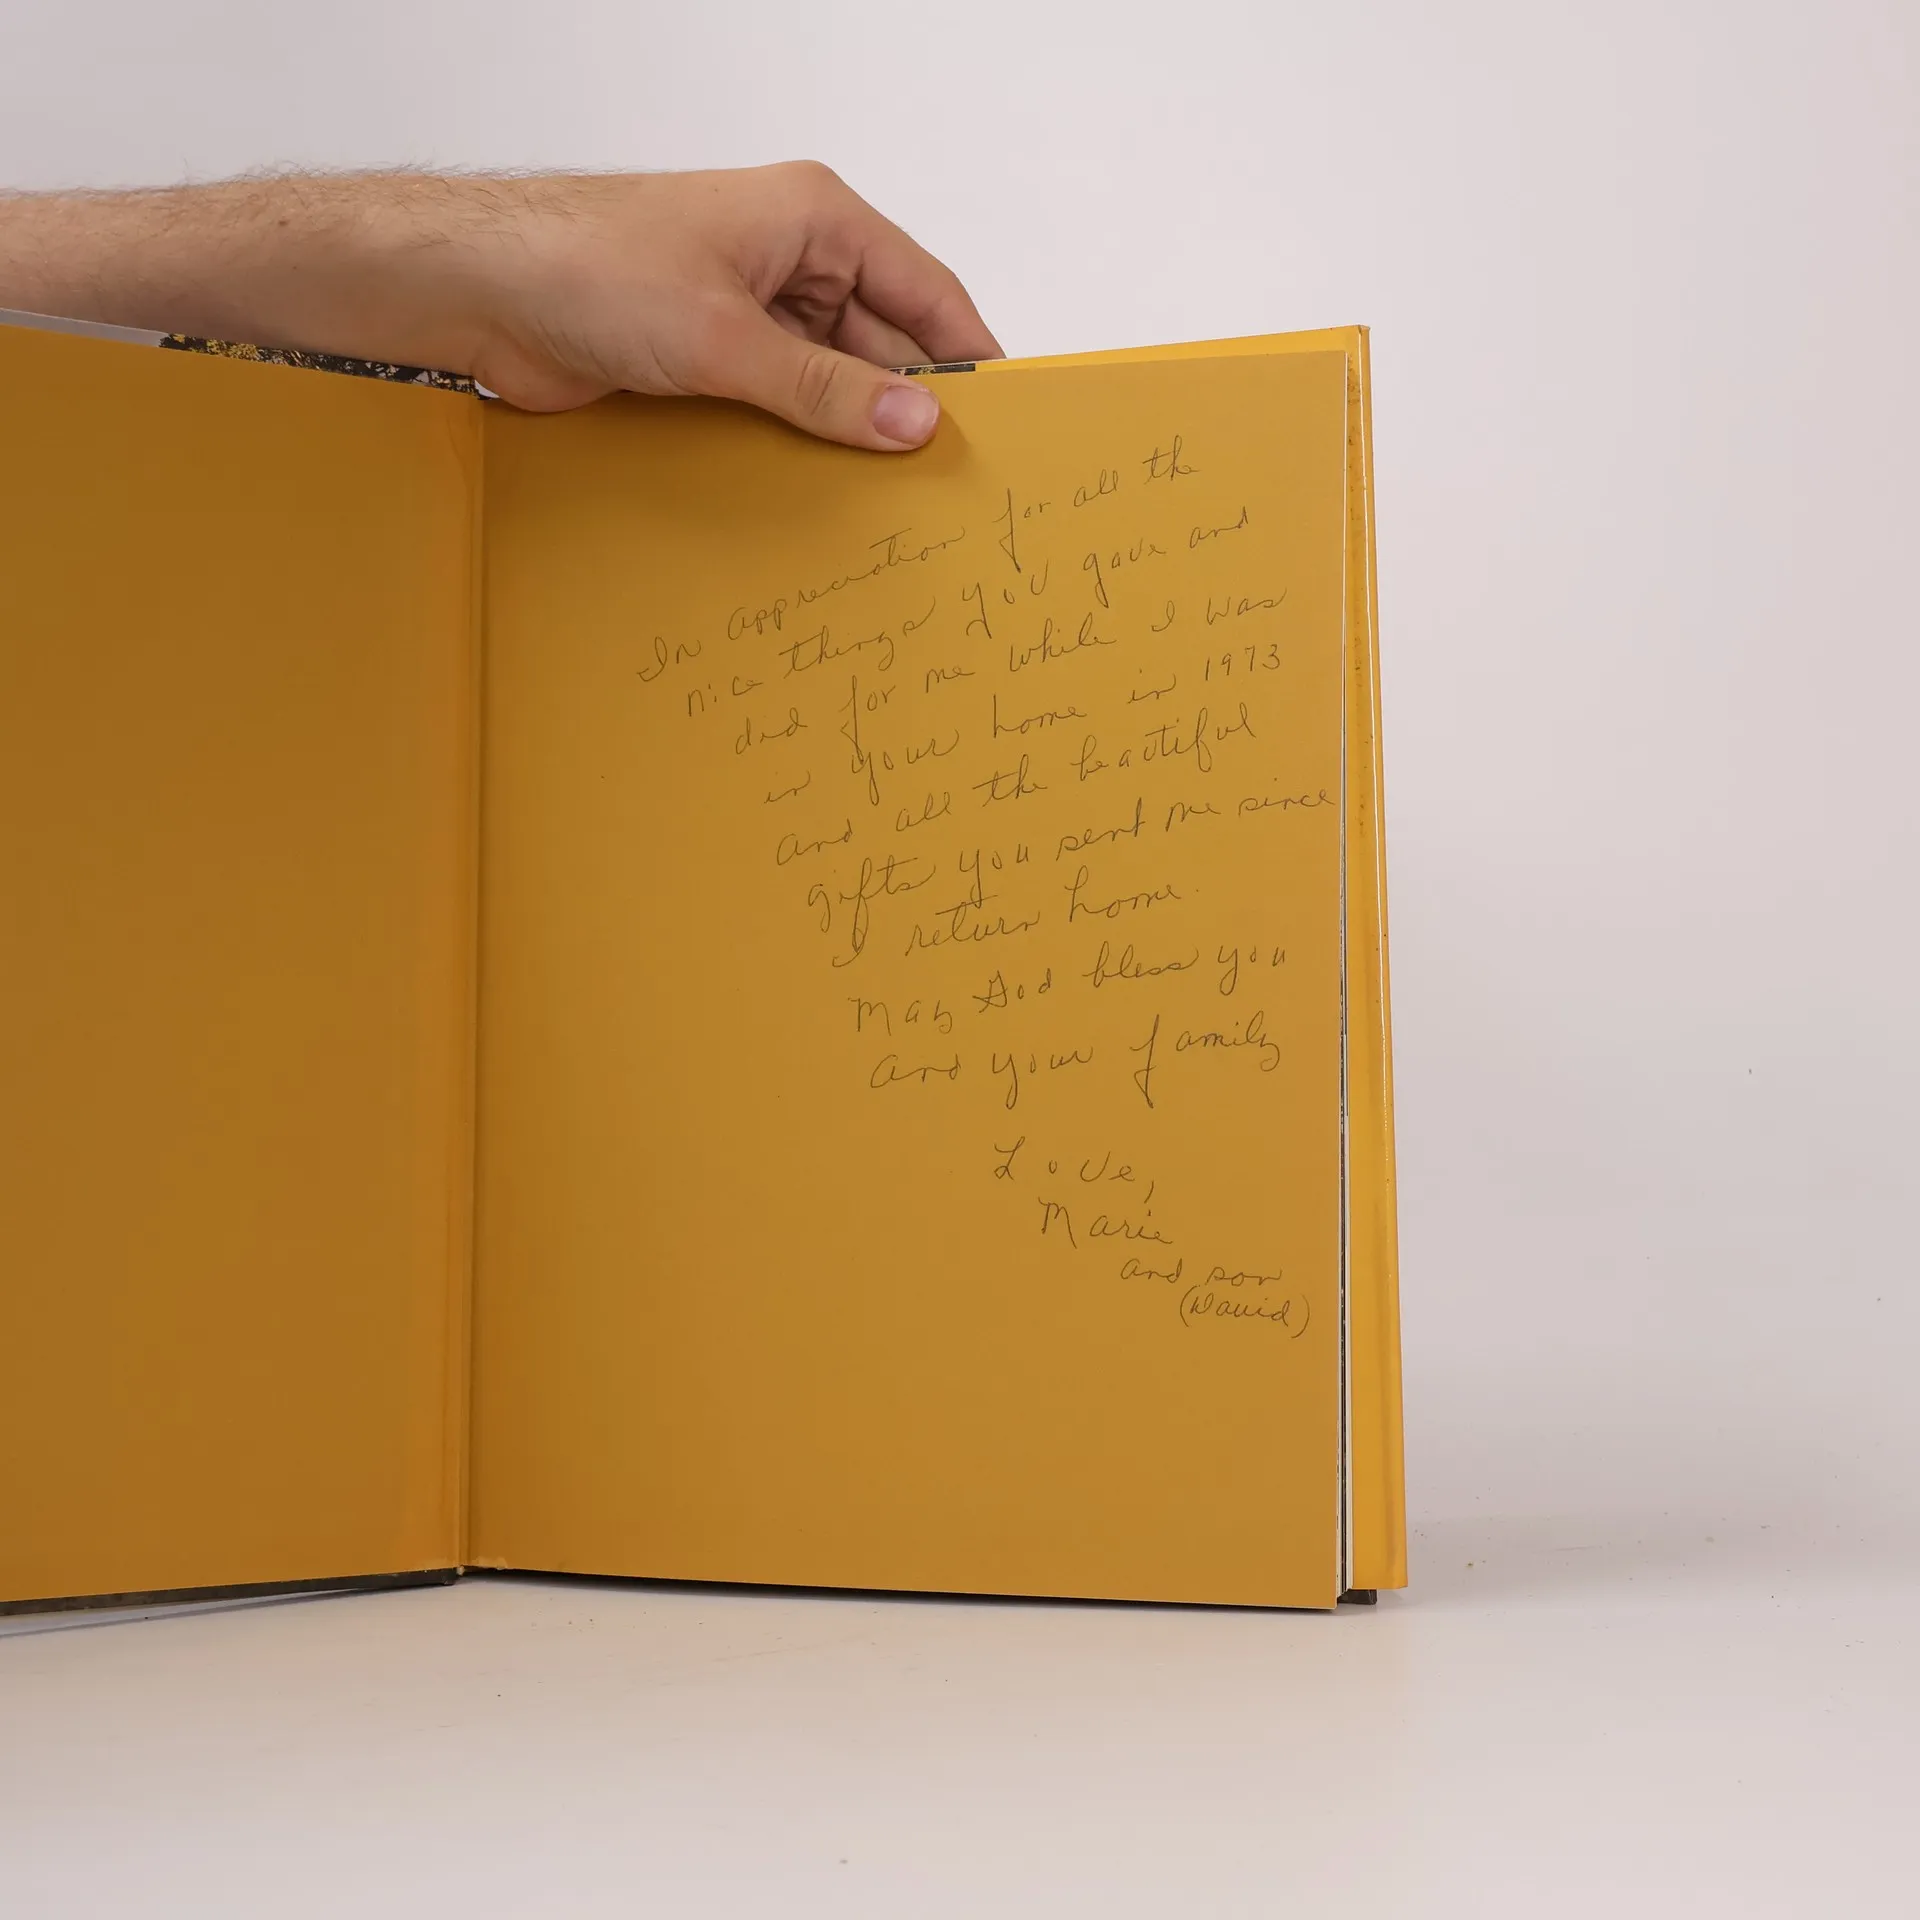 In appreciation for all the
nice things you gave and
did for me while I was
in your home in 1973
and all the beautiful
gifts you sent me since
I return home.
May God bless you
and your family
Love,
Marie
and son
(David)